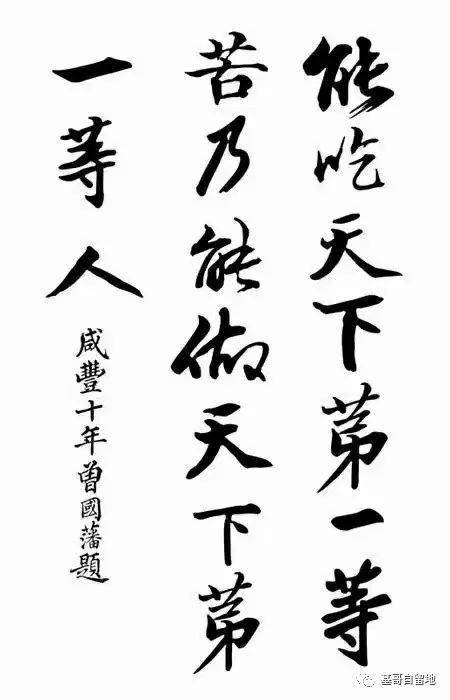 能吃天下苐一等
苦乃能做天下苐
一等人
咸豐十年曾國藩題
基哥自留地